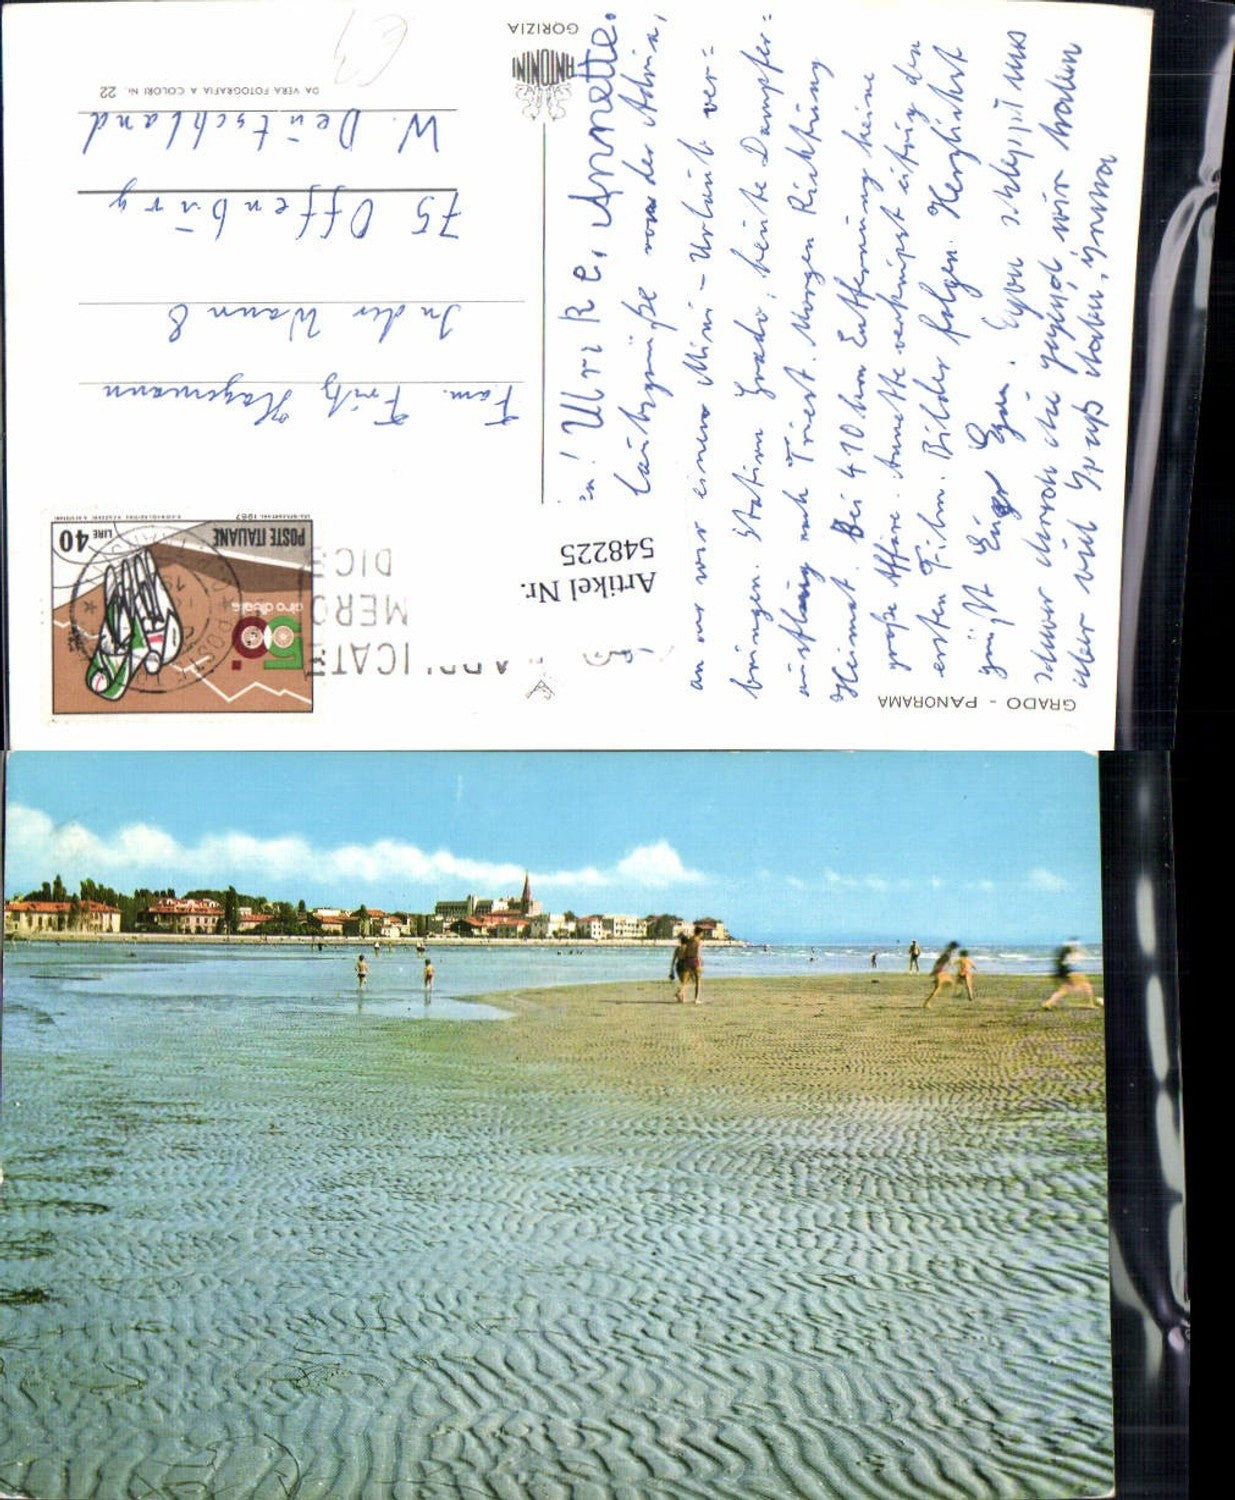 GRADO - PANORAMA
Artikel Nr.
548225
an wo wir einen Mini-Urlaub ver=
bringen. Station Grado, heute Dampfer=
ausflug nach Triest. Morgen Richtung
Heimat. Bei 410 km Entfernung keine
große Affäre. Annette verknipst eifrig den
ersten Film. Bilder folgen. Herzlichst
grüßt Euer Egon. Egon schleppt uns
schwer durch die Gegend, wir haben
aber viel Spaß dabei,
Ulrike, Annette.
von der Adria,
ANTONINI
GORIZIA
POSTE ITALIANE
LIRE 40
50.
giro d'italia
1967
MERC
DICE
Fam. Fritz Hagemann
In der Wann 8
75 Offenburg
W. Deutschland
DA VERA FOTOGRAFIA A COLORI Nr. 22